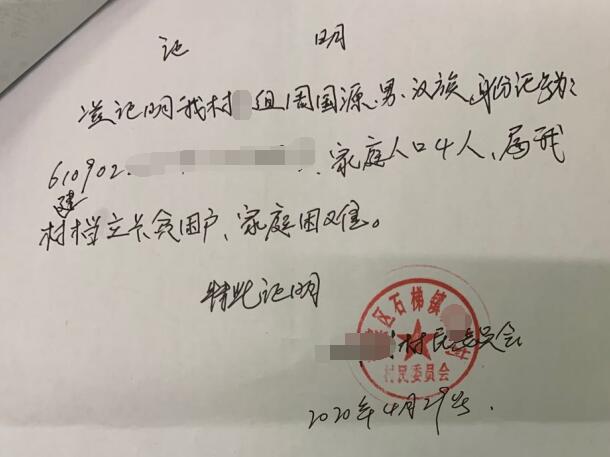 证 明
兹证明我村 组周国源、男、汉族、身份证号为:
610902 、家庭人口4人、属我
村建档立卡贫困户、家庭困难。
特此证明
区石梯镇
村民委员会
村民委员会
2020年4月29号.